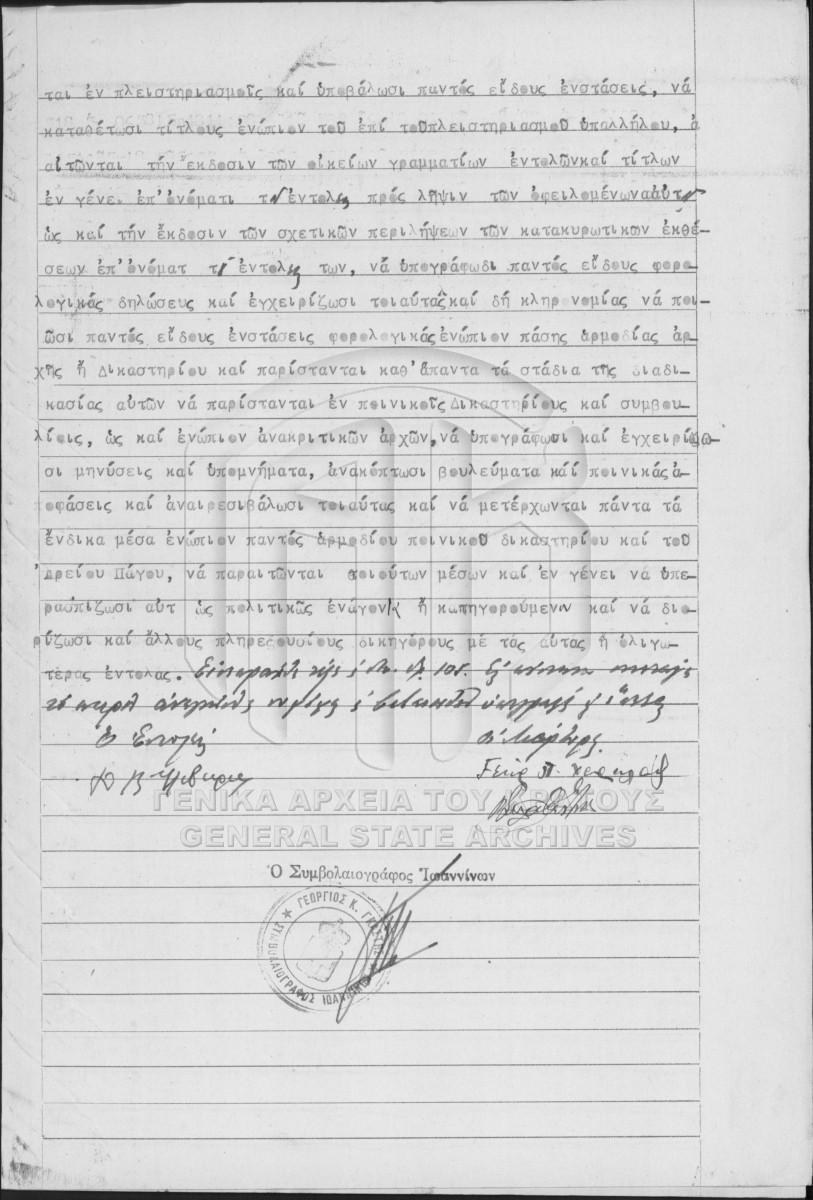 ται ἐν πλειστηριασμοῖς καί ὑποβάλωσι παντός εἴδους ἐνστάσεις, νά
καταθέτωσι τίτλους ἐνώπιον τοῦ ἐπί τοῦπλειστηριασμοῦ ὑπαλλήλου, ἀ
αἰτῶνται τήν ἔκδοσιν τῶν οἰκείων γραμματίων ἐντολῶνκαί τίτλων
ἐν γένει ἐπ'ὀνόματι τ ἐντολ πρός λῆψιν τῶν ὀφειλομένων
ὡς καί τήν ἔκδοσιν τῶν σχετικῶν περιλήψεων τῶν κατακυρωτικων ἐκθέ-
σεων ἐπ'ὀνόματ τ ἐντολ των, νά ὑπογράφωδι παντός εἴδους φορο-
λογικάς δηλώσευς καί ἐγχειρίζωσι τοιαύτας καί δή κληρονομίας νά ποι-
ῶσι παντός εἴδους ἐνστάσεις φορολογικάς ἐνώπιον πάσης ἁρμοδίας ἀρ-
χῆς ἤ Δικαστηρίου καί παρίστανται καθ'ἅπαντα τά στάδια τῆς διαδι-
κασίας αὐτῶν νά παρίστανται ἐν ποινικοῖς Δικαστηρίους καί συμβου-
λίοις, ὡς καί ἐνώπιον ἀνακριτικῶν ἀρχῶν, νά ὑπογράφωσι καί ἐγχειρίζω-
σι μηνύσεις καί ὑπομνήματα, ἀνακόπτωσι βουλεύματα κάί ποινικάς ἀ-
ποφάσεις καί ἀναιρεσιβάλωσι τοιαύτας καί νά μετέρχωνται πάντα τά
ἔνδικα μέσα ἐνώπιον παντός ἁρμοδίου ποινικοῦ δικαστηρίου καί τοῦ
Ἀρείου Πάγου, νά παραιτῶνται τοιούτων μέσων καί ἐν γένει νά ὑπε-
ρασπίζωσι αὐτ ὡς πολιτικῶς ἐνάγον ἤ κατηγορούμεν καί νά διο-
ρίζωσι καί ἄλλους πληρεξουσίους δικηγόρους μέ τάς αὐτας ἤ ὀλιγω-
τέρας ἐντολας.
Ὁ Ἐντολεύς
Οἱ Μάρτυρες
Γεώρ Π.
ΓΕΝΙΚΑ ΑΡΧΕΙΑ ΤΟΥ ΚΡΑΤΟΥΣ
GENERAL STATE ARCHIVES
Ὁ Συμβολαιογράφος Ἰωαννίνων
ΓΕΩΡΓΙΟΣ Κ.
ΣΥΜΒΟΛΑΙΟΓΡΑΦΟΣ ΙΩΑΝΝΙΝΩΝ